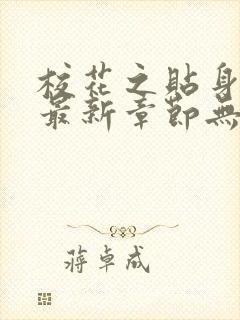 校花之貼身
最新章節無
蔣卓成